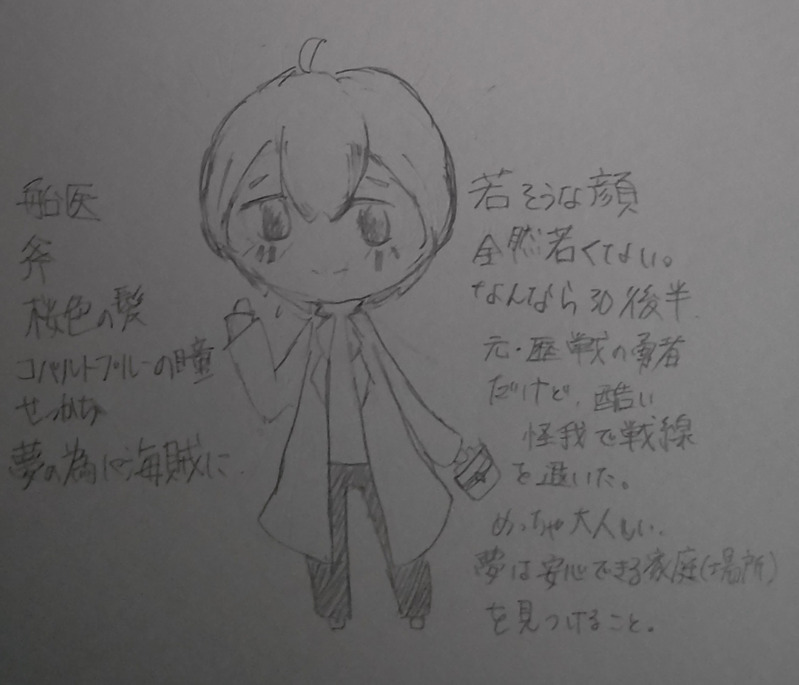 船医
斧
桜色の髪
コバルトブルーの瞳
せっかち
夢の為に海賊に
若そうな顔
全然若くない。
なんなら30後半
元・歴戦の勇者
だけど、酷い
怪我で戦線
を退いた。
めっちゃ大人しい
夢は安心できる家庭(場所)
を見つけること。